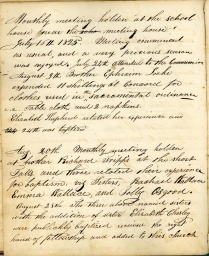 Monthly meeting holden at the school
house near the meeting house
July 15th 1825. Meeting commenced
as usual, and a very precious season
was enjoyed. July 24th attended to the Communion
August 3d. Brother Ephraim
expended 2 shillings at Concord for
clothes used in the sacramental ordinance
i.e. Table cloth and 2 napkins
Elizabeth related her experience and
24th was baptized
Aug 20th. Monthly meeting holden
at brother Richard at the short
Falls and three related their experience
for baptism, viz. Sisters, Rachael
Emma Wallace, and Polly Osgood.
August 28th the three above named sisters
with the addition of sister Elizabeth
were publickly baptized received the right
hand of fellowship and added to this church